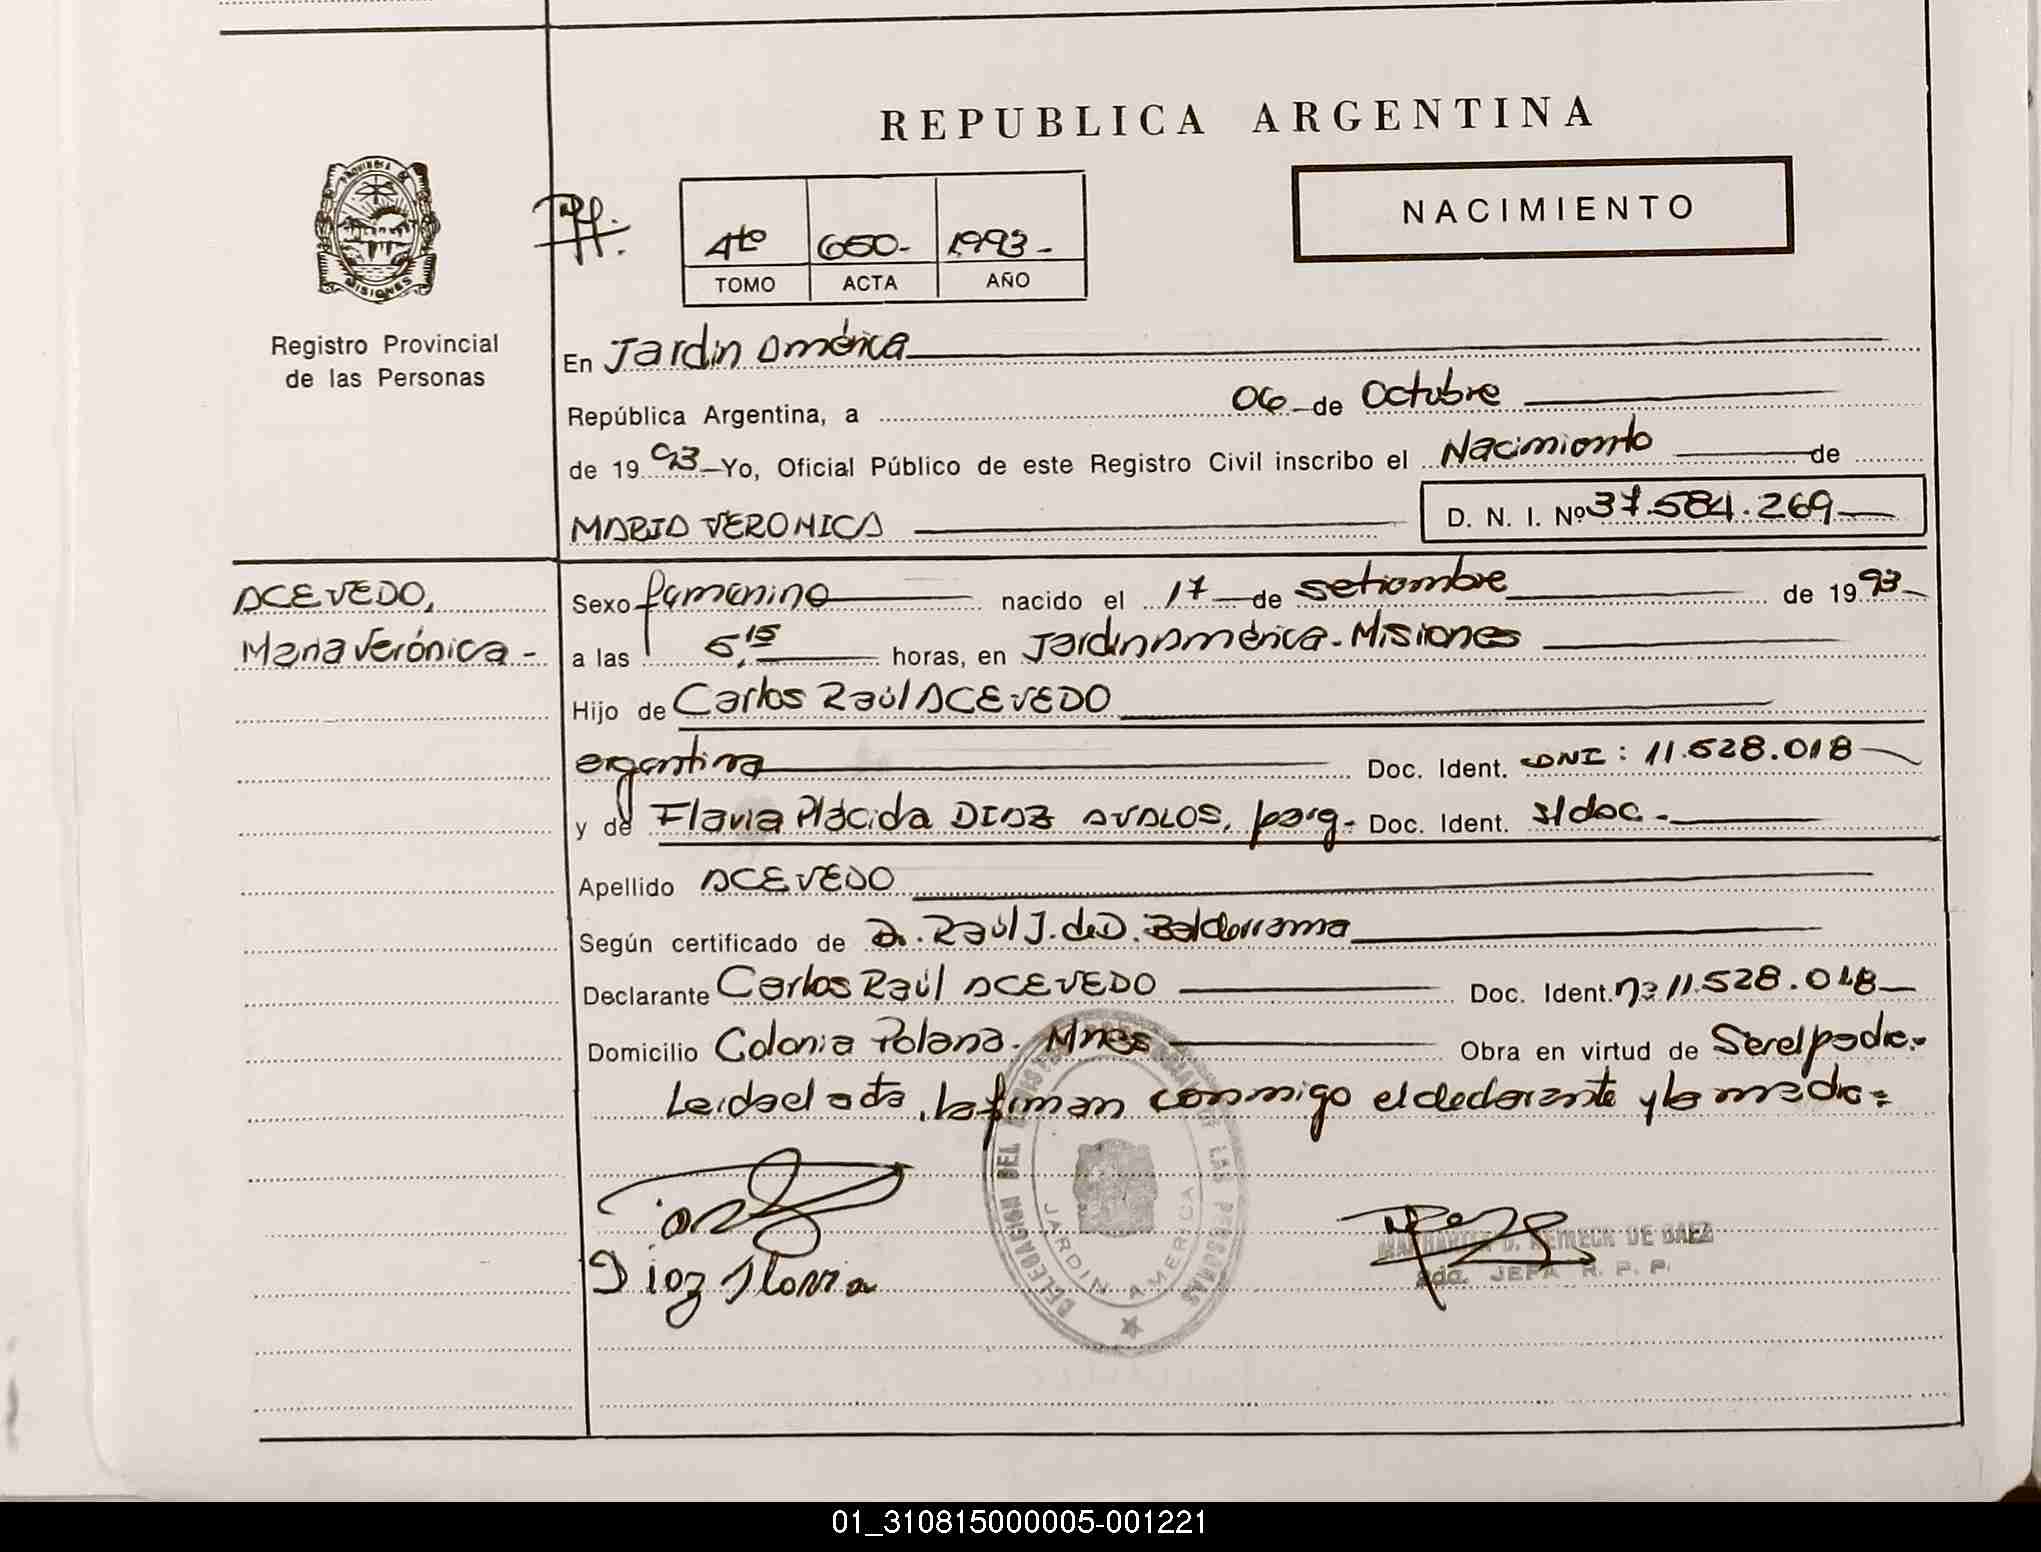 REPUBLICA ARGENTINA
PROVINCIA DE
MISIONES
Registro Provincial
de las Personas
4to 650- 1993-
TOMO ACTA AÑO
NACIMIENTO
En Jardin América
República Argentina, a 06 de Octubre
de 1993 Yo, Oficial Público de este Registro Civil inscribo el Nacimiento de
MARIA VERONICA D. N. I. Nº 37.584.269
ACEVEDO,
Maria Verónica -
Sexo femenino nacido el 17 de setiembre de 1993
a las 5,15 horas, en Jardin América - Misiones
Hijo de Carlos Raúl ACEVEDO
argentina Doc. Ident. DNI: 11.528.018
y de Flavia Plácida DIAZ AVALOS, parg- Doc. Ident. s/doc.-
Apellido ACEVEDO
Según certificado de Dr. Raúl J. de D. Balderrama
Declarante Carlos Raúl ACEVEDO Doc. Ident. nº 11.528.018
Domicilio Colonia Polana. Mnes Obra en virtud de Ser el padre.-
Leida el acta, la firman conmigo el declarante y la madre=
Diaz Flavia
DELEGACION DEL REGISTRO PROVINCIAL DE LAS PERSONAS
JARDIN AMERICA
REINECK DE BAEZ
JEFA R. P. P.
01_310815000005-001221